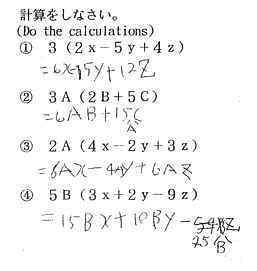 計算をしなさい。
(Do the calculations)
① 3 (2x-5y+4z)
=6x-15y+12z
② 3A (2B+5C)
=6AB+15C
A
③ 2A (4x-2y+3z)
=8Ax-4Ay+6Az
④ 5B (3x+2y-9z)
=15Bx+10By-
25
B